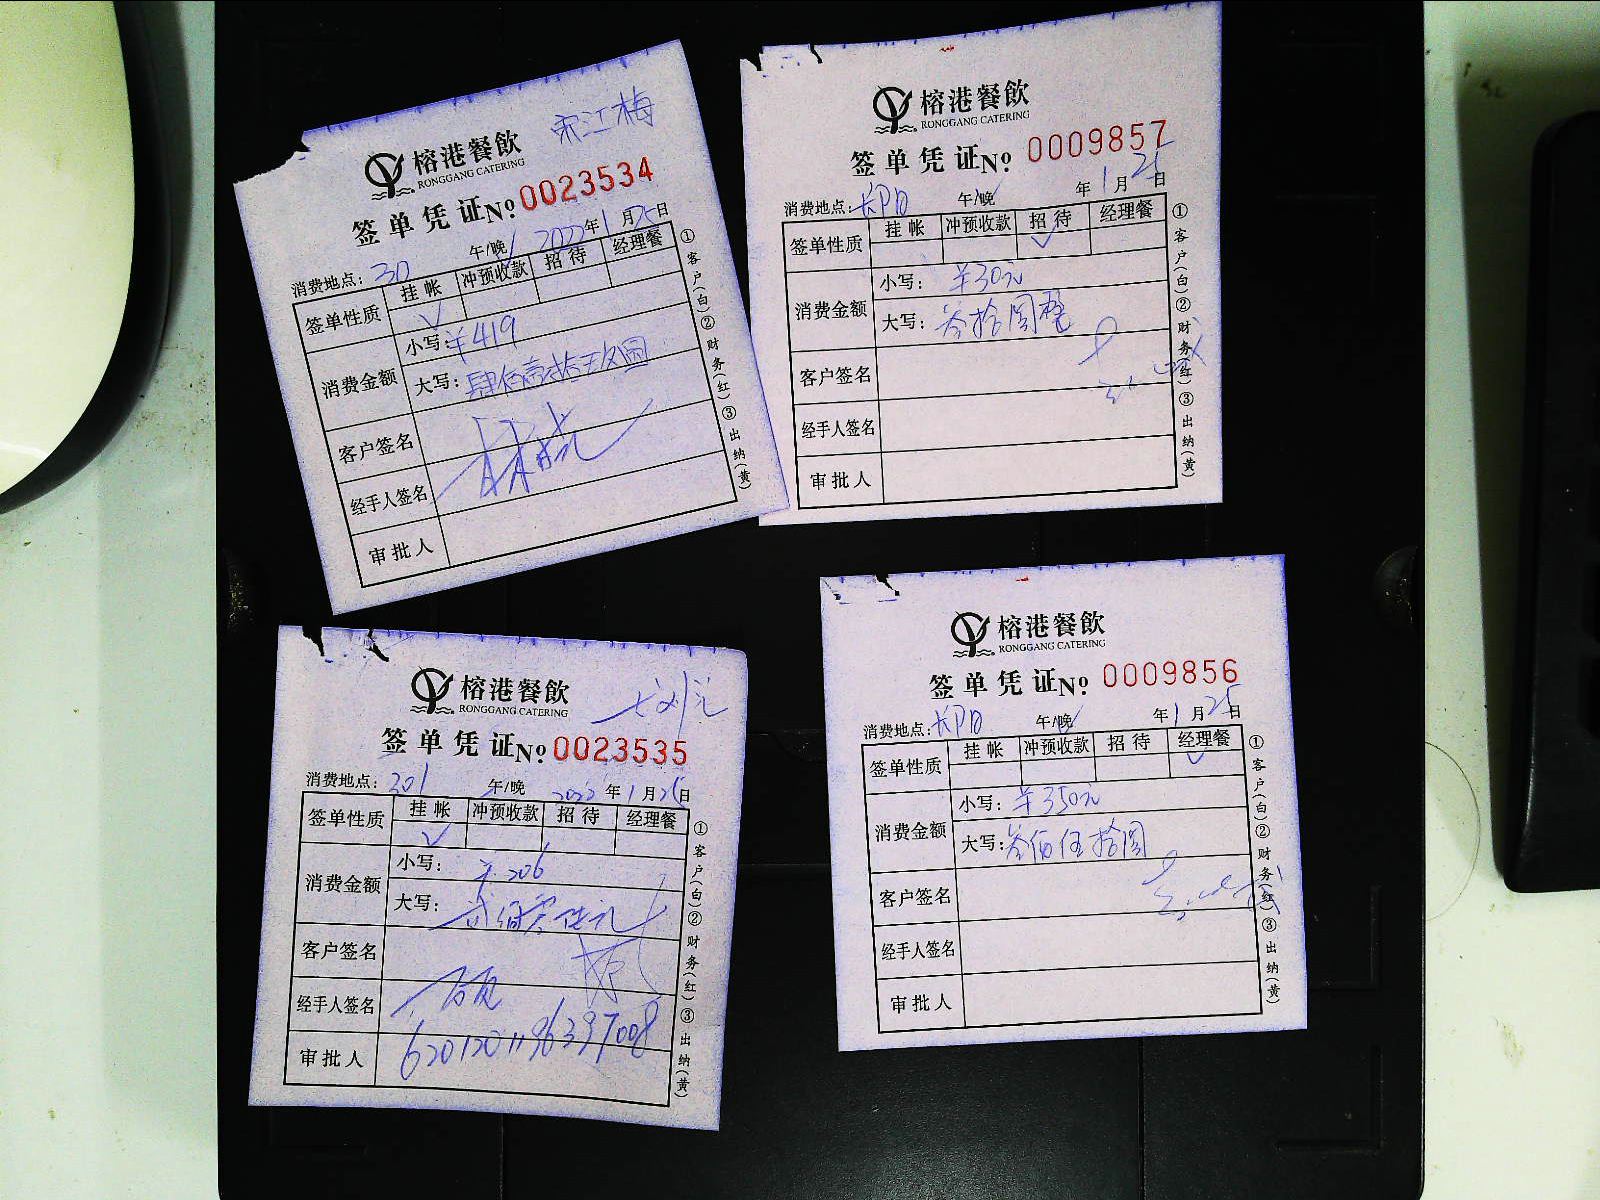 宋江梅
榕港餐飲
RONGGANG CATERING
签单凭证 Nº 0023534
消费地点：30 午/晚 2022年1月25日
签单性质 挂帐 冲预收款 招待 经理餐
✓
消费金额 小写：￥419
大写：肆佰壹拾玖圆
客户签名
经手人签名
审批人
①客户(白)②财务(红)③出纳(黄)
榕港餐飲
RONGGANG CATERING
签单凭证 Nº 0009857
消费地点： 午/晚 年1月25日
签单性质 挂帐 冲预收款 招待 经理餐
✓
消费金额 小写：￥30元
大写：叁拾圆整
客户签名
经手人签名
审批人
①客户(白)②财务(红)③出纳(黄)
榕港餐飲
RONGGANG CATERING
签单凭证 Nº 0023535
消费地点：301 午/晚 2022年1月25日
签单性质 挂帐 冲预收款 招待 经理餐
✓
消费金额 小写：￥206
大写：
客户签名
经手人签名
审批人
①客户(白)②财务(红)③出纳(黄)
榕港餐飲
RONGGANG CATERING
签单凭证 Nº 0009856
消费地点： 午/晚 年1月25日
签单性质 挂帐 冲预收款 招待 经理餐
✓
消费金额 小写：￥350元
大写：叁佰伍拾圆
客户签名
经手人签名
审批人
①客户(白)②财务(红)③出纳(黄)